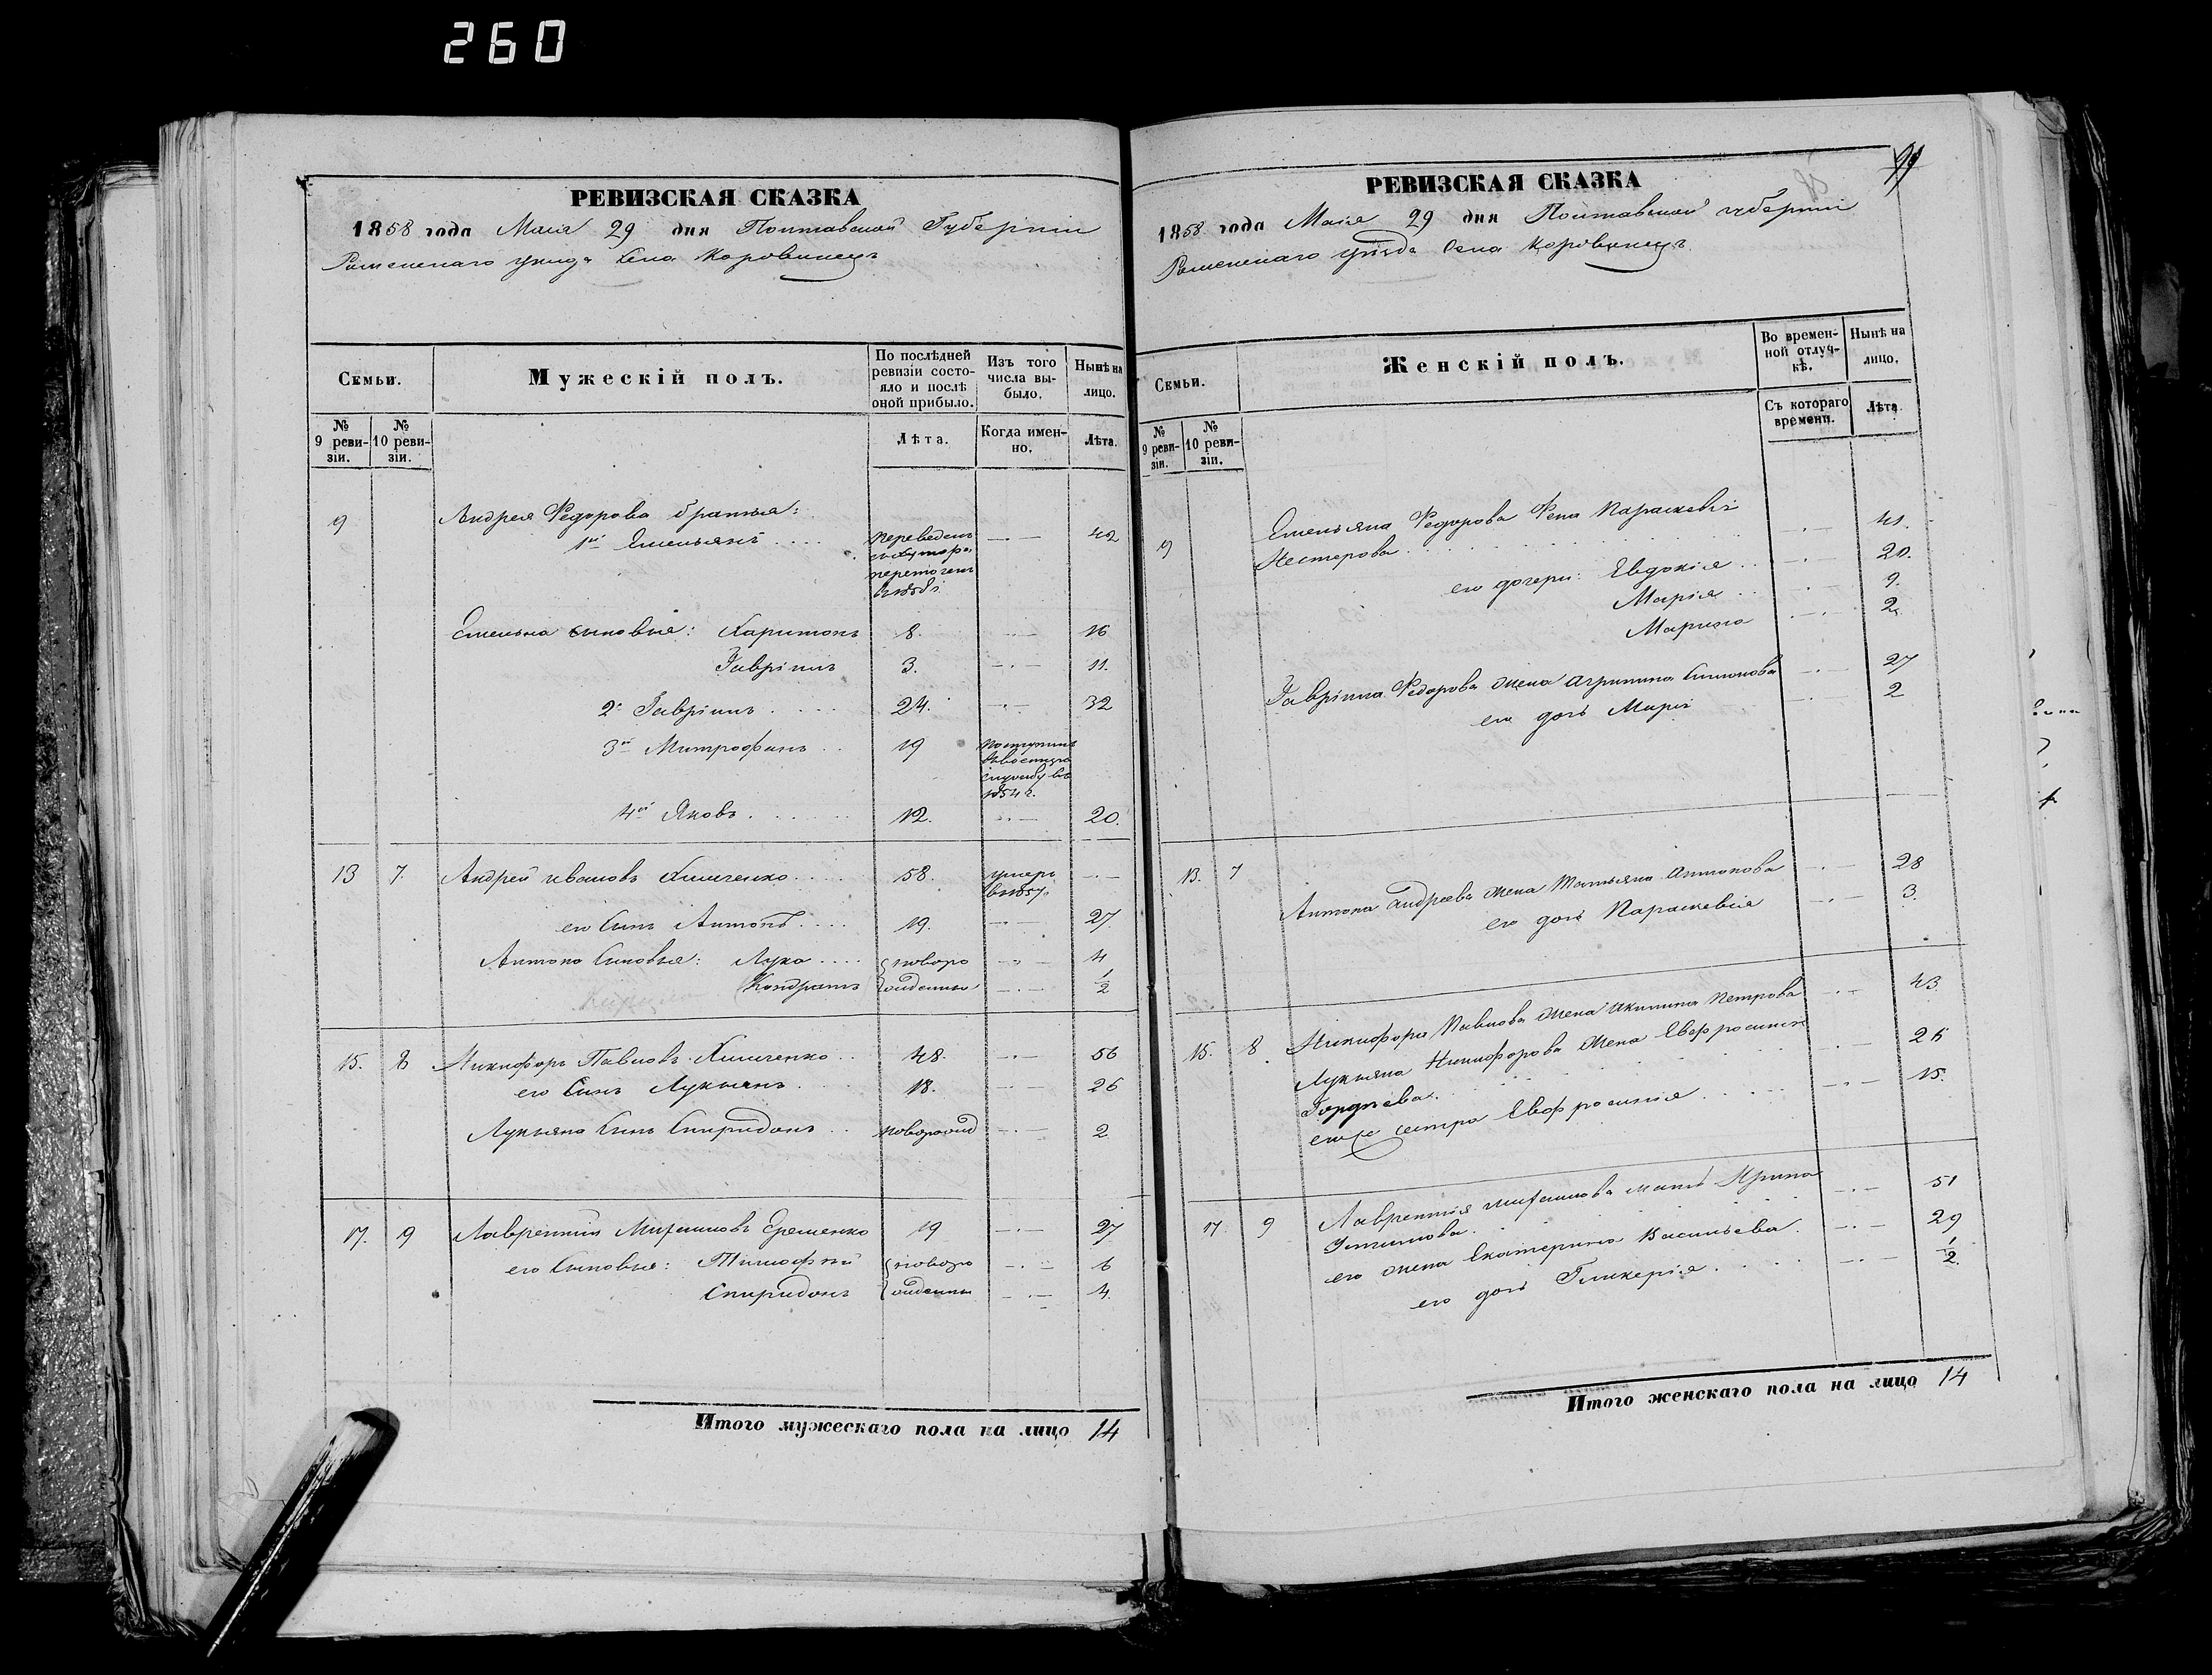 260
РЕВИЗСКАЯ СКАЗКА
1858 года Маія 29 дня Полтавской Губерніи
Роменскаго уезда Села Коровинецъ
Семьи.
Мужескій полъ.
По послѣдней ревизіи состо-
яло и послѣ
оной прибыло.
Изъ того
числа вы-
было.
Нынѣ на
лицо.
№
9 реви-
зіи.
№
10 реви-
зіи.
Лѣта.
Когда имен-
но.
Лѣта.
9 Андрея Федорова братья:
1й Емельянъ .... переведенъ 42
въ 1858 г.
Емельяна сыновья: Харитонъ 8. 16
Гавріилъ 3. 11.
2й Гавріилъ .... 24. 32
3й Митрофанъ .. 19 поступилъ
въ военную
службу въ
1854 г.
4й Яковъ ...... 12. 20.
13 7. Андрей Ивановъ Климченко .... 58. умеръ
въ 1857 г.
его Сынъ Антонъ .... 19. 27.
Антона Сыновья: Лука .... новоро 4
Кондратъ жденны 1/2
15. 8 Никифоръ Павловъ Климченко .. 48. 56
его Сынъ Лукьянъ .. 18. 26
Лукьяна Сынъ Спиридонъ .. новорожд 2
17. 9 Лаврентій Ерешенко 19 27
его Сыновья: Тимофей новоро 6
Спиридонъ жденны 4.
Итого мужескаго пола на лицо 14
РЕВИЗСКАЯ СКАЗКА
1858 года Маія 29 дня Полтавской губерніи
Роменскаго уѣзда Села Коровинецъ.
Семьи.
Женскій полъ.
Во времен-
ной отлуч-
кѣ.
Нынѣ на
лицо.
№
9 реви-
зіи.
№
10 реви-
зіи.
Съ котораго
времени.
Лѣта.
9 Емельяна Федорова Жена Параскевія
Нестерова 41.
его дочери: Евдокія .. 20.
Марія .. 9.
Марина 2
Гавріила Федорова жена Агрипина Симонова 27
его дочь Марія 2
13. 7 Антона Андреева жена Татьяна Антонова 28
его дочь Параскевія 3.
15. 8 Никифора Павлова жена Акилина Петрова 43
Лукьяна Никифорова жена Евфросинія
Гордѣева 26
его сестра Евфросинія 15.
17. 9 Лаврентія мать Ирина
Устимова 51
его жена Екатерина Васильева 29
его дочь Гликерія 1/2
Итого женскаго пола на лицо 14